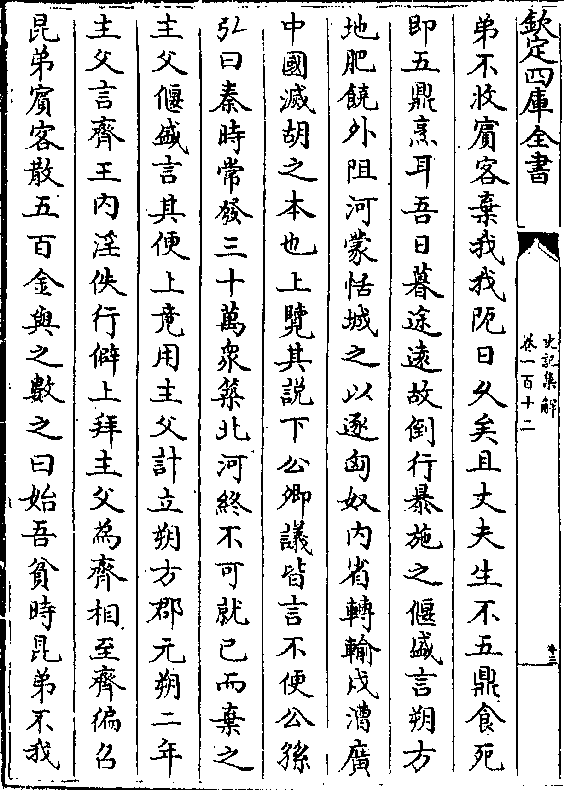 欽定四庫全書
史記集解
卷一百十二
弟不收賓客棄我我阨日久矣且丈夫生不五鼎食死
即五鼎烹耳吾日暮途遠故倒行暴施之偃盛言朔方
地肥饒外阻河蒙恬城之以逐匈奴内省轉輸戍漕廣
中國滅胡之本也上覽其説下公卿議皆言不便公孫
弘曰秦時常發三十萬衆築北河終不可就已而棄之
主父偃盛言其便上竟用主父計立朔方郡元朔二年
主父言齊王内淫佚行僻上拜主父為齊相至齊徧召
昆弟賓客散五百金與之數之曰始吾貧時昆弟不我